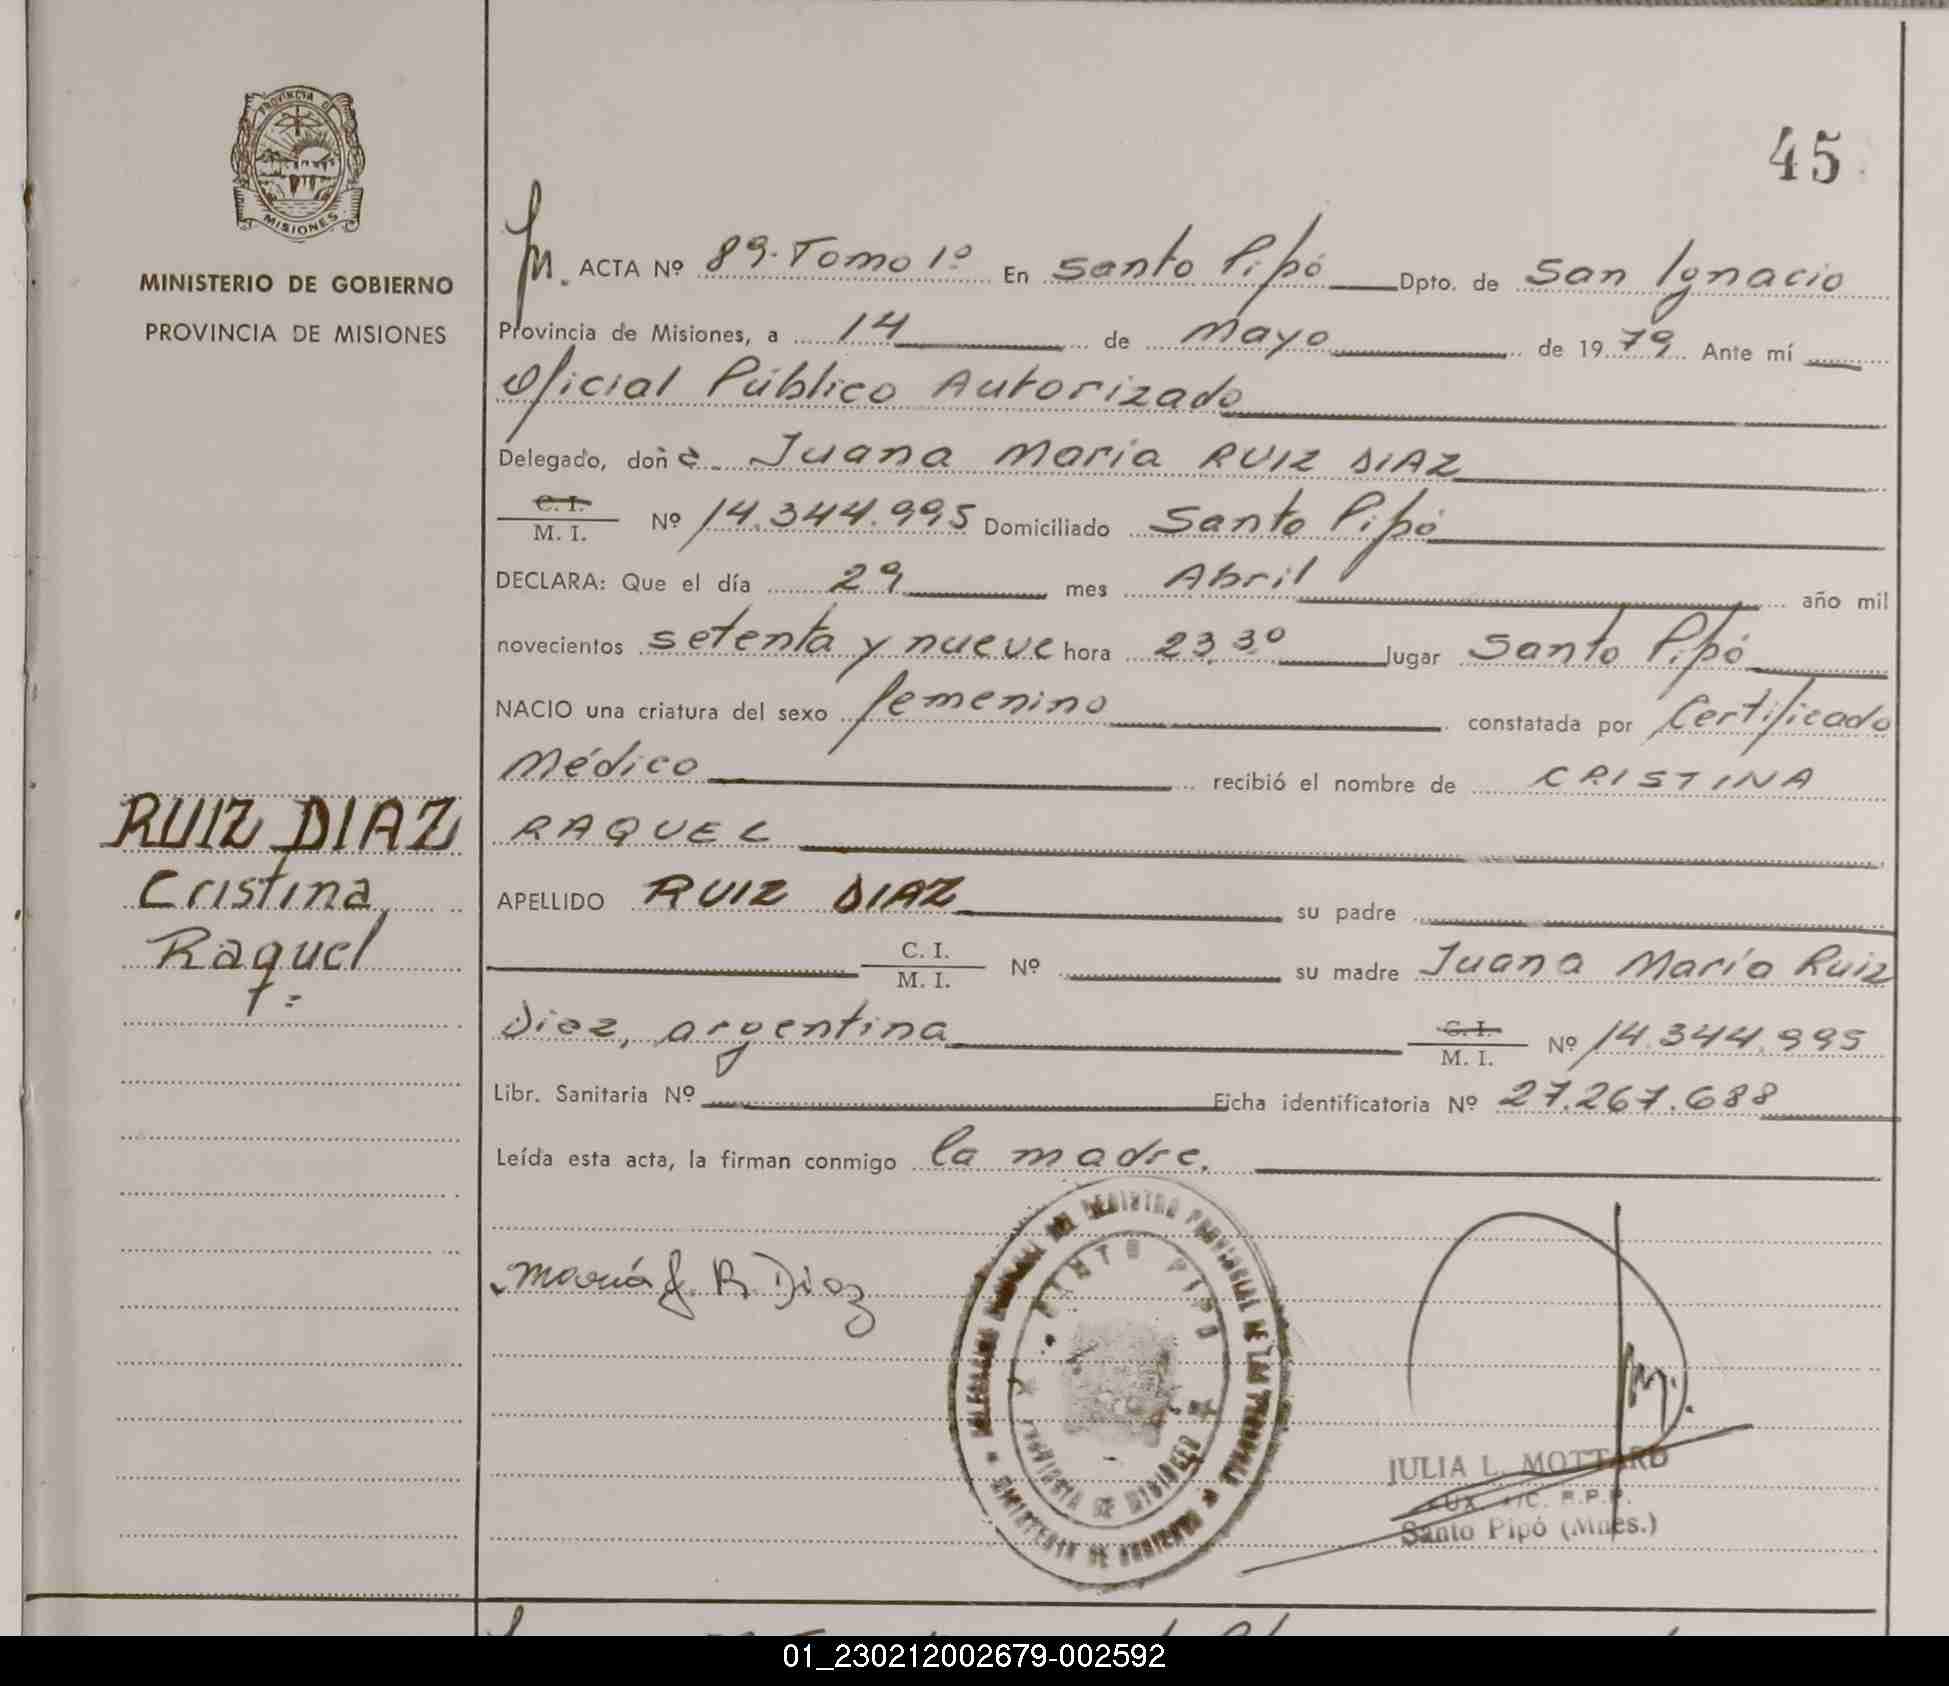 PROVINCIA D
MISIONES
MINISTERIO DE GOBIERNO
PROVINCIA DE MISIONES
45
ACTA Nº 89. Tomo 1º En Santo Pipó Dpto. de San Ignacio
Provincia de Misiones, a 14 de Mayo de 1979 Ante mí
Oficial Público Autorizado
Delegado, doña. Juana Maria RUIZ DIAZ
C. I.
M. I. Nº 14.344.995 Domiciliado Santo Pipó
DECLARA: Que el día 29 mes Abril año mil
novecientos setenta y nueve hora 23,30 lugar Santo Pipó
NACIO una criatura del sexo femenino constatada por Certificado
Médico recibió el nombre de CRISTINA
RAQUEL
APELLIDO RUIZ DIAZ su padre
C. I.
M. I. Nº su madre Juana María Ruiz
Diaz, argentina C. I.
M. I. Nº 14.344.995
Libr. Sanitaria Nº Ficha identificatoria Nº 27.267.688
Leída esta acta, la firman conmigo la madre.
RUIZ DIAZ
Cristina
Raquel
María J. R. Diaz
REGISTRO PROVINCIAL DE LAS PERSONAS
MINISTERIO DE GOBIERNO
SANTO PIPO
PROVINCIA DE MISIONES
JULIA L. MOTTARD
AUX. A/C. R.P.P.
Santo Pipó (Mnes.)
01_230212002679-002592